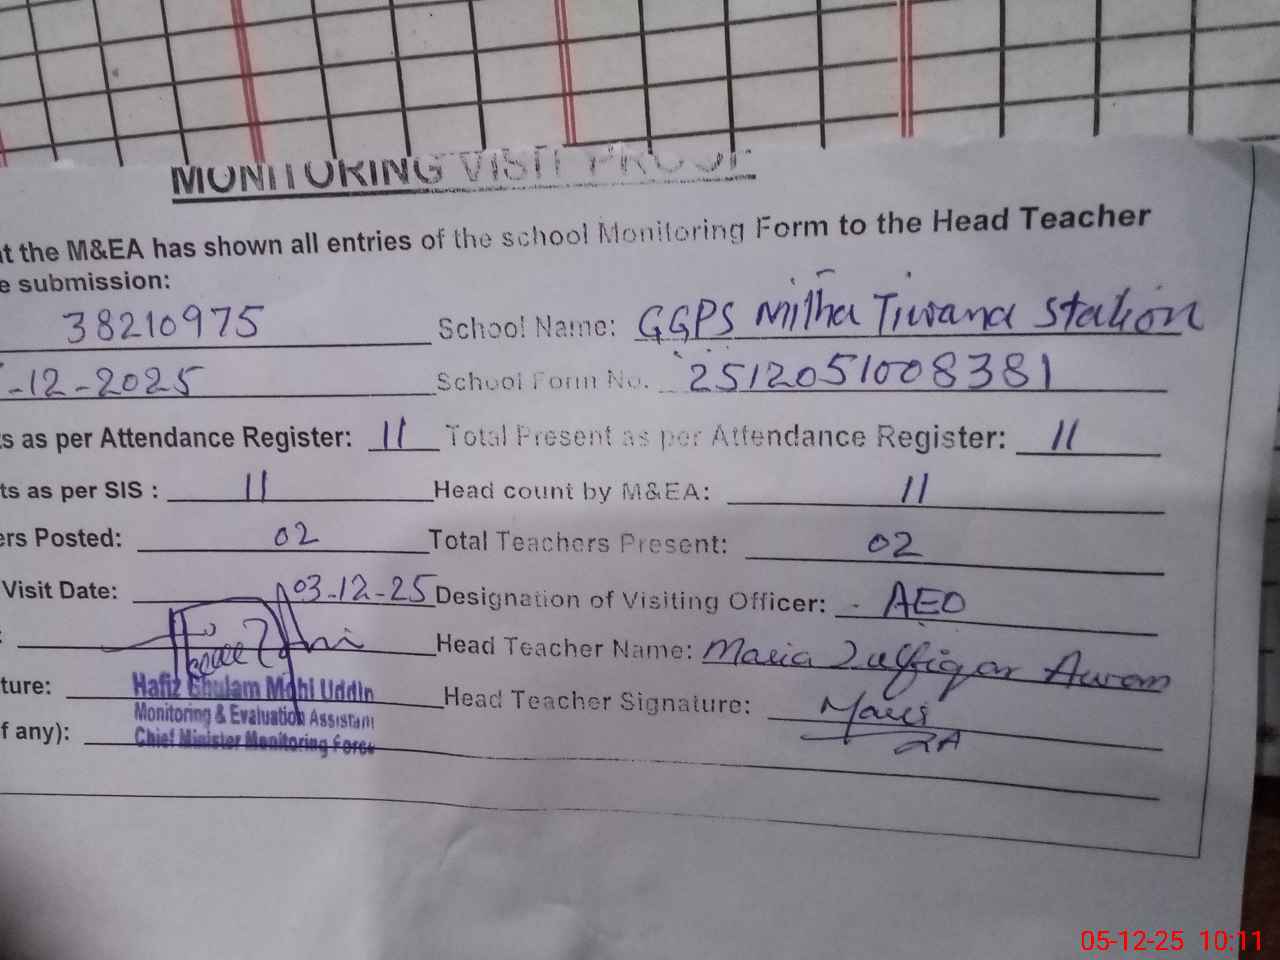 MONITORING VISIT PROOF
at the M&EA has shown all entries of the school Monitoring Form to the Head Teacher
e submission:
38210975 School Name: GGPS Mitha Tiwana Station
-12-2025 School Form No. 2512051008381
ts as per Attendance Register: 11 Total Present as per Attendance Register: 11
ts as per SIS : 11 Head count by M&EA: 11
ers Posted: 02 Total Teachers Present: 02
Visit Date: 03-12-25 Designation of Visiting Officer: AEO
: Head Teacher Name: Maria Zulfiqar Awan
ture: Head Teacher Signature:
Hafiz Ghulam Mohi Uddin
Monitoring & Evaluation Assistant
Chief Minister Monitoring Force
f any):
05-12-25 10:11